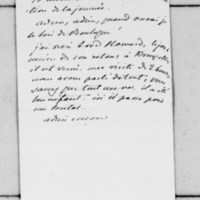 tion de la journée.
adieu, adieu, quand aurai-je
le bois de Boulogne!
j'ai vu Lord Howard, le jour
même de son retour à Bruxelles
il est venu une visite de 2 heures
nous avons parlé de tout, vous
savez que tout me va. il a été
bon enfant - ici il passe pour
un brutal.
adieu encore